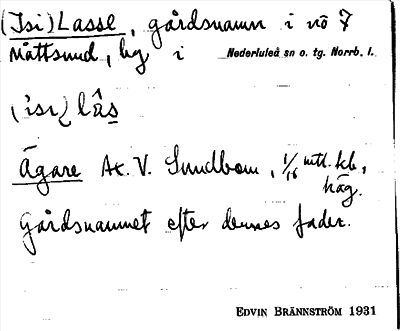 (Isi)Lasse, gårdsnamn i nö 7
Måttsund, by i Nederluleå sn o. tg. Norrb. l.
(isi) lås
Ägare Ax. V. Sundbom, 1/16 mtl. kb,
häg.
Gårdsnamnet efter dennes fader.
EDVIN BRÄNNSTRÖM 1931